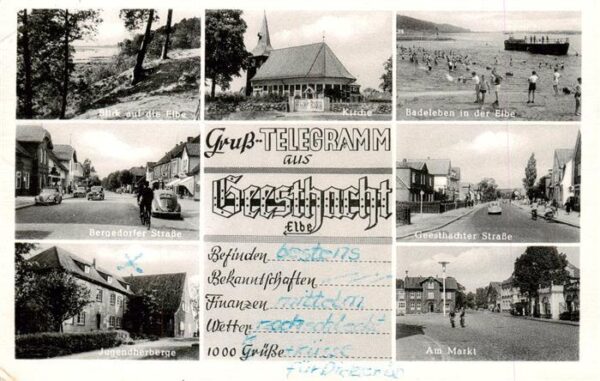 Blick auf die Elbe
Kirche
Badeleben in der Elbe
Gruß-TELEGRAMM
aus
Geesthacht
Elbe
Bergedorfer Straße
Geesthachter Straße
Befinden bestens
Bekanntschaften
Finanzen mittelm.
Wetter noch schlecht
1000 Grüße
für Dich
Jugendherberge
Am Markt